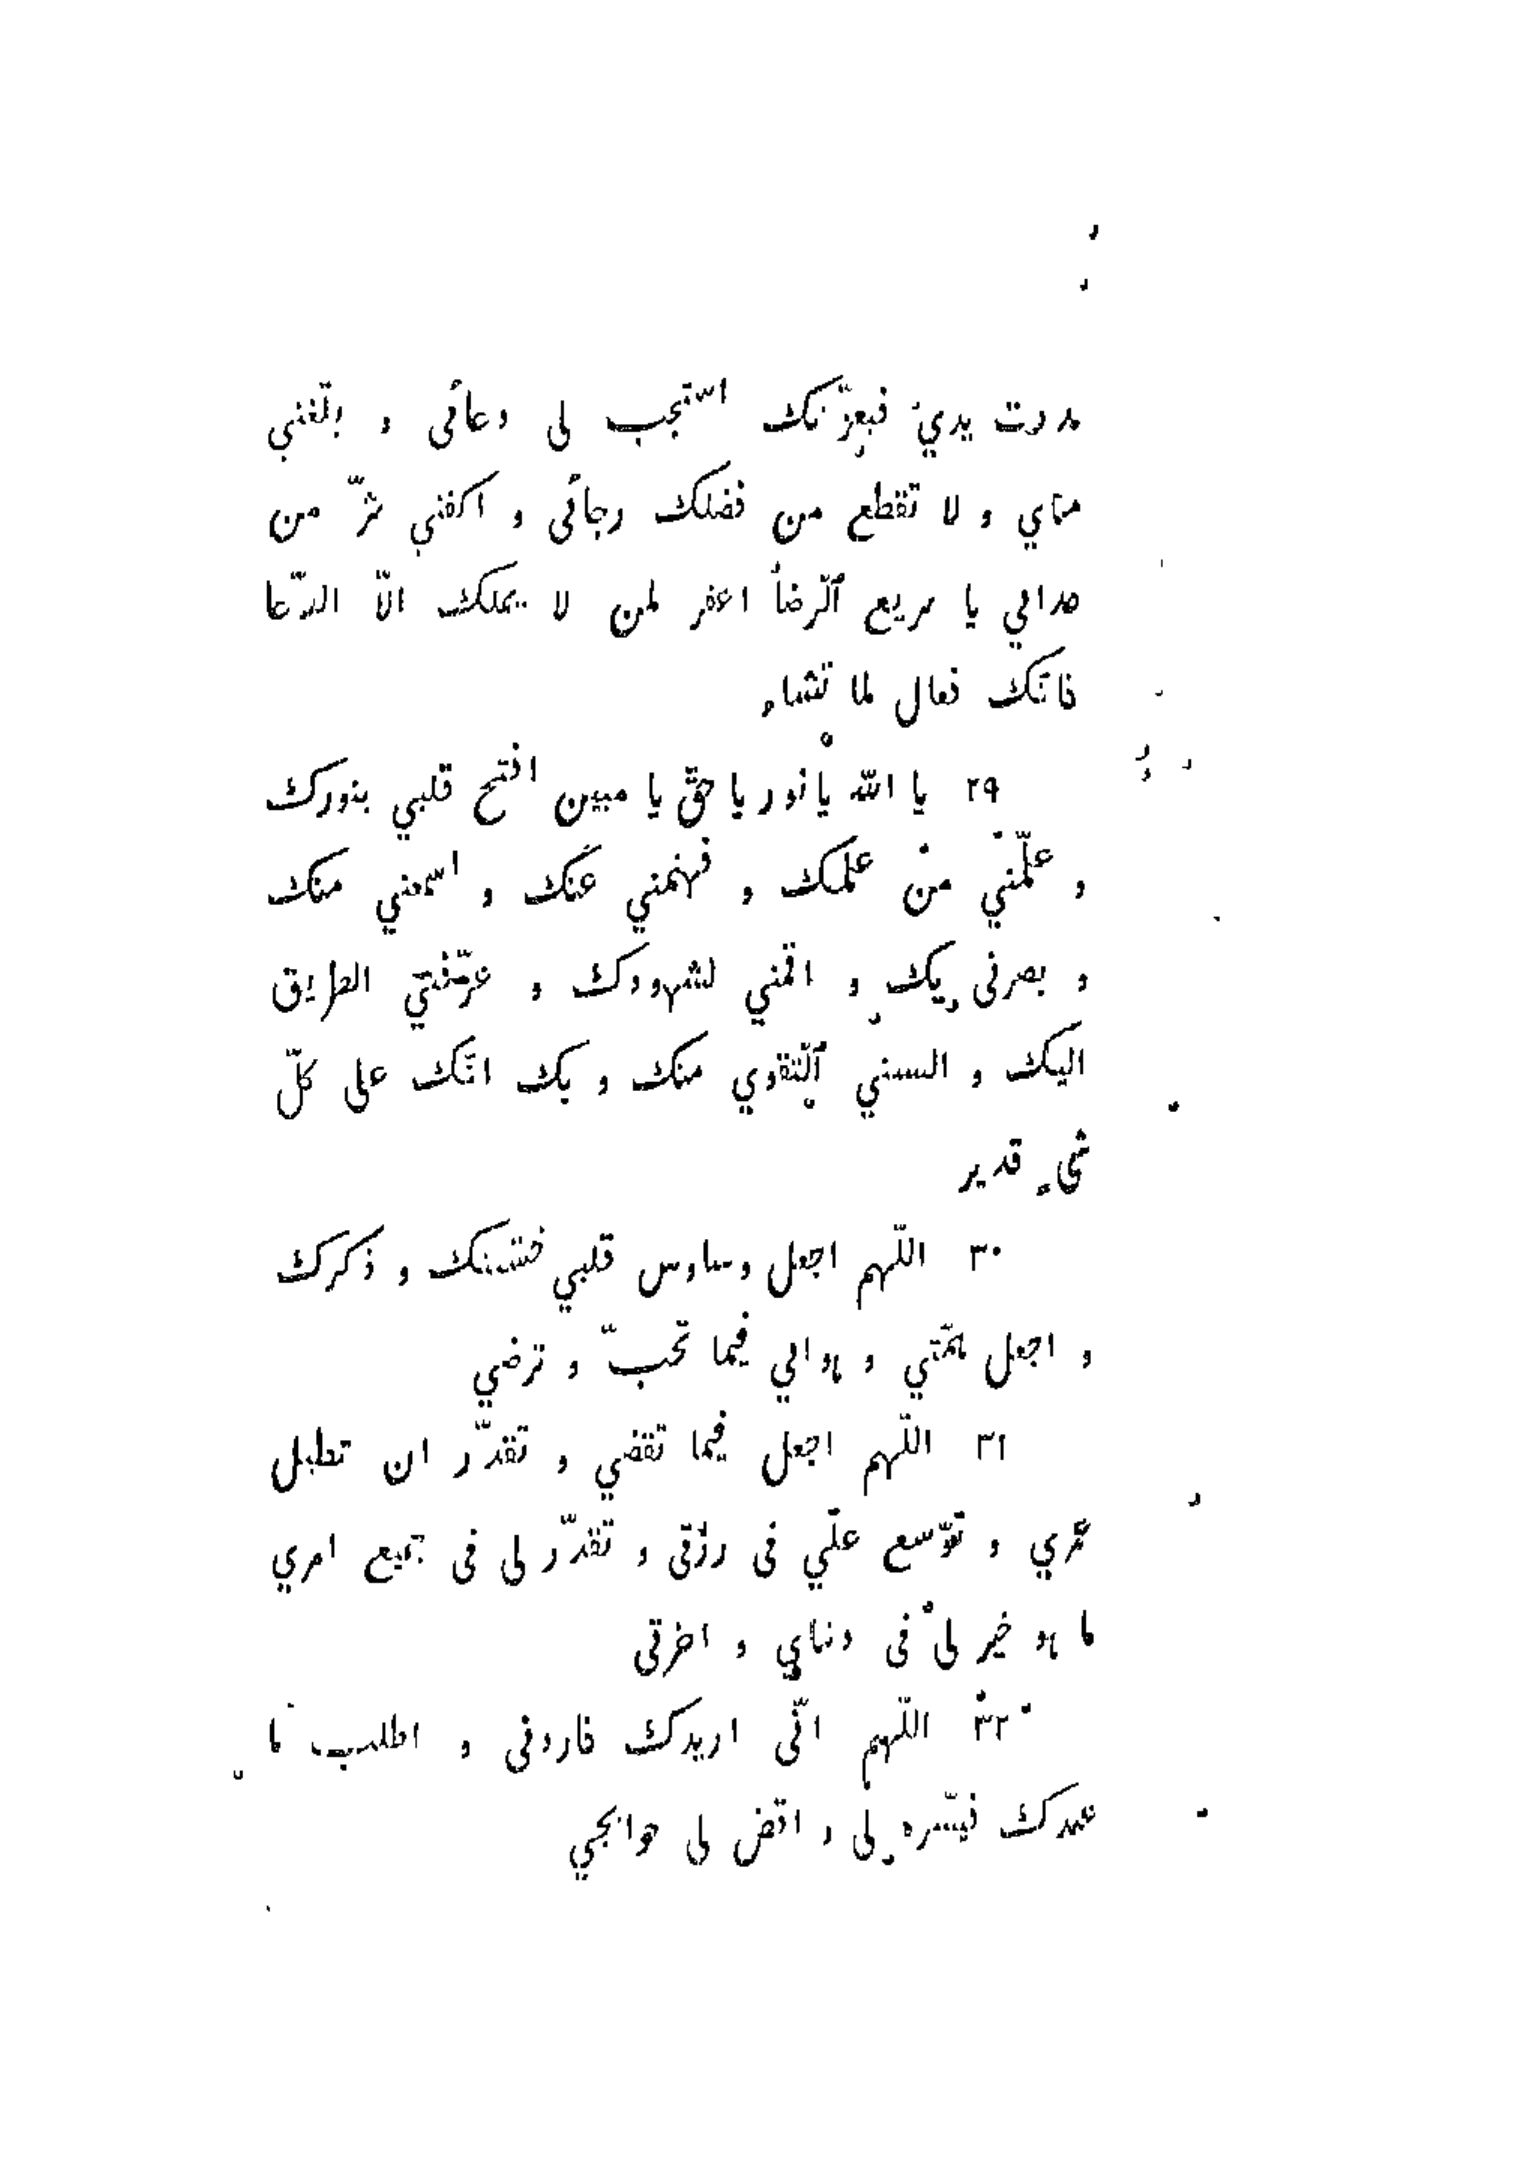 مددت يدي فبعزّتك استجب لى دعائى و بلّغني
مناي و لا تقطع من فضلك رجائى و اكفني شرّ من
عداني يا سريع الّرضأ اغفر لمن لا يملك الاّ الدّعا
فانّك فعال لما تشاء
٢٩ يا الله يا نور يا حقّ يا مبين افتح قلبي بنورك
و علّمني من علمك و فهمني عنك و اسمعني منك
و بصرنى بك و اقمني لشهودك و عرّفني الطريق
اليك و البسني الّتقوي منك و بك انّك على كلّ
شىء قدير
٣٠ اللّهم اجعل وساوس قلبي خشيتك و ذكرك
و اجعل همّتي و هواي فيما تحبّ و ترضي
٣١ اللّهم اجعل فيما تقضي و تقدّر ان تطيل
عمري و توّسع علّي فى رزقى و تقدّر لى فى جميع امري
ما هو خير لى فى دناي و اخرتى
٣٢ اللّهم انّى اريدك فاردنى و اطلب ما
عندك فيسّره لى و اقض لى حوايجي